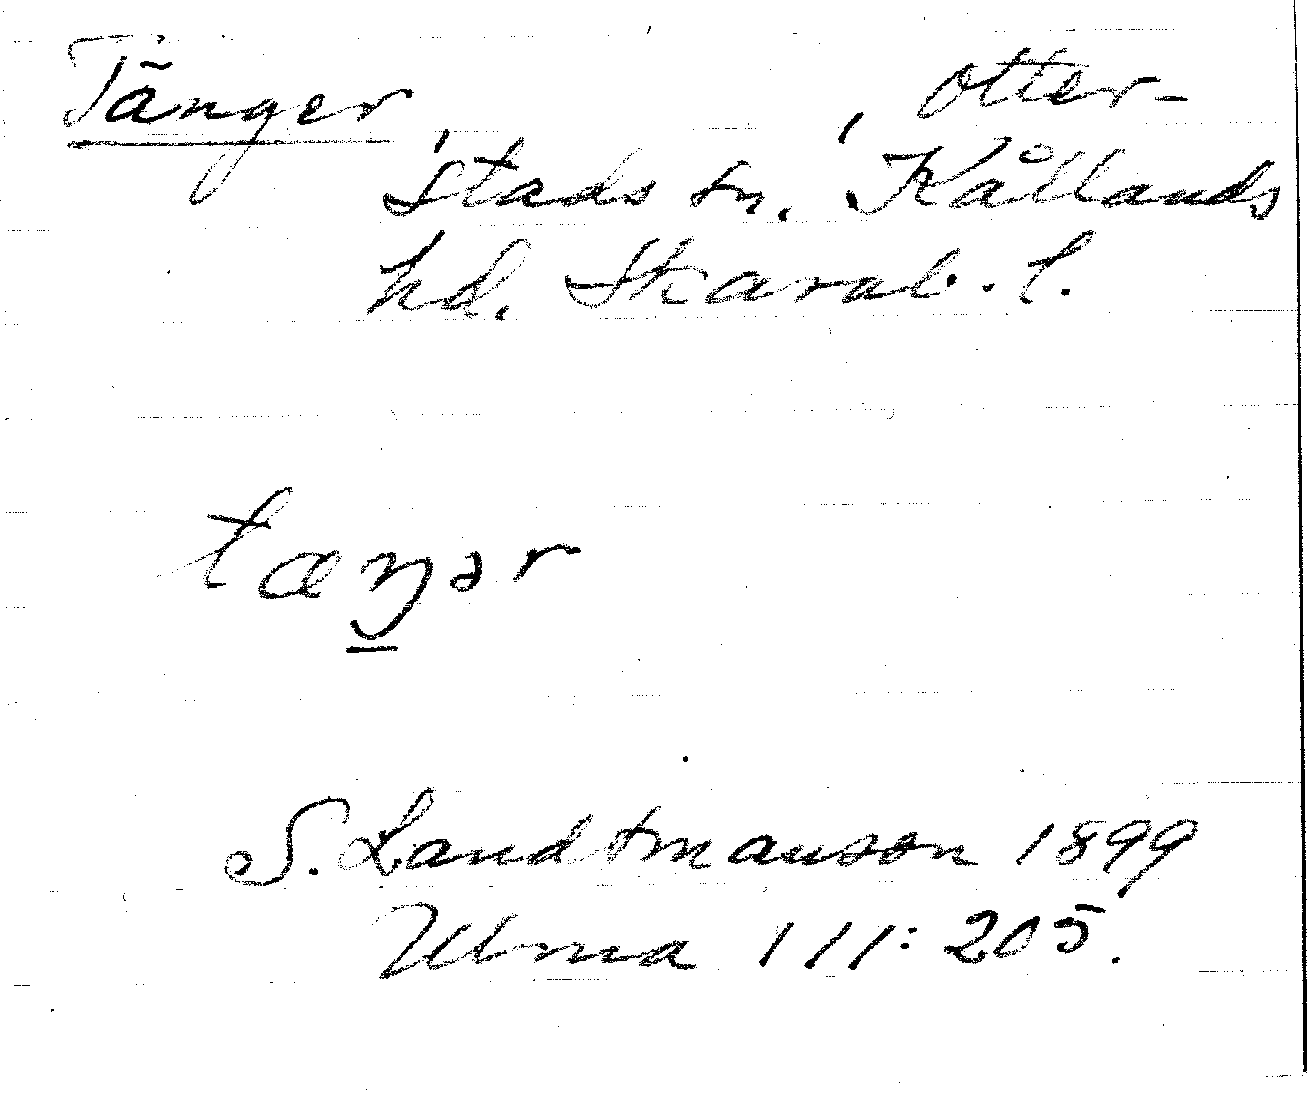 Tänger, Otter-
stads sn. Kållands
hd. Skarab. l.
tæŋər
S. Landtmanson 1899
Ulma 111: 205.